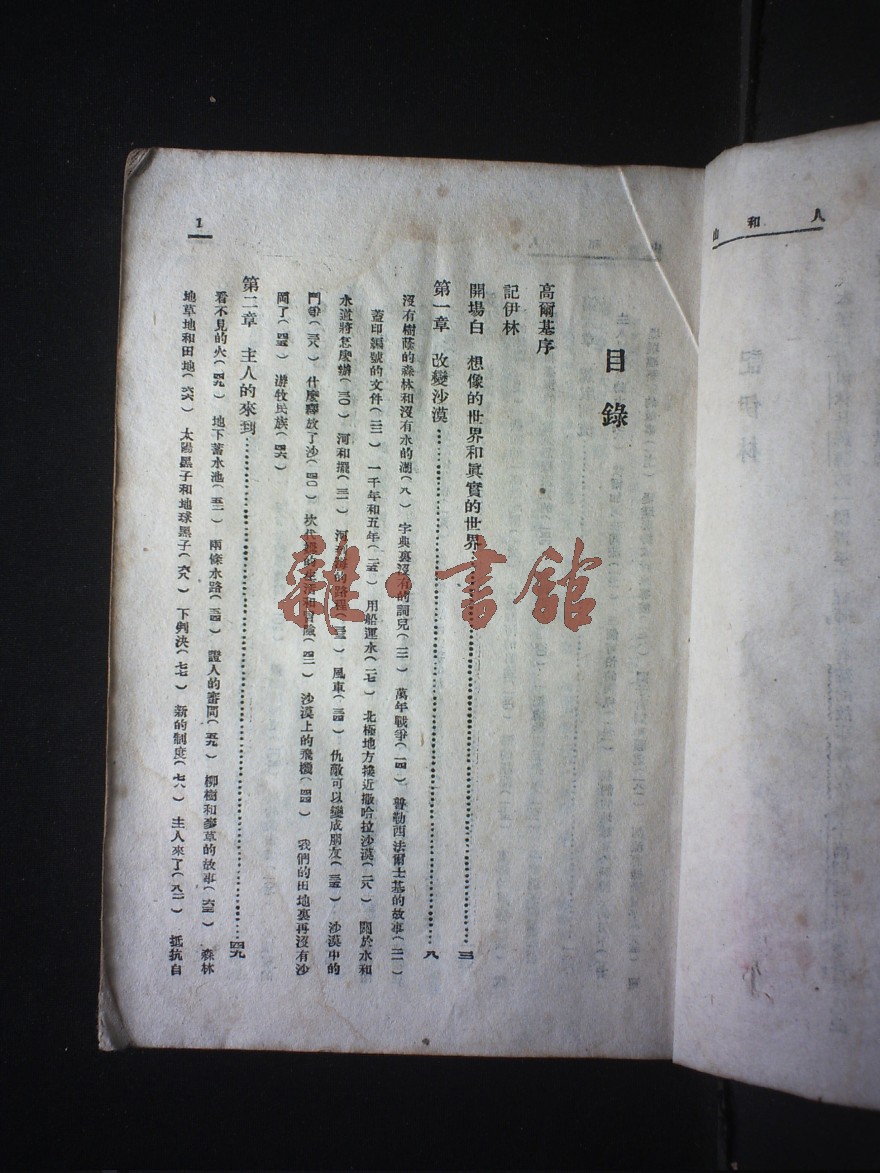 人和山
目錄
高爾基序
記伊林
開場白 想像的世界和眞實的世界……三
第一章 改變沙漠……八
沒有樹蔭的森林和沒有水的湖(八) 字典裏沒有的詞兒(一三) 萬年戰爭(一四) 普勒西法爾士基的故事(二一)
蓋印編號的文件(二三) 一千年和五年(二五) 用船運水(二七) 北極地方接近撒哈拉沙漠(二八) 關於水和
水道將怎麼辦(三〇) 河和擺(三一) 河 的路程(三三) 風車(三四) 仇敵可以變成朋友(三五) 沙漠中的
鬥爭(三八) 什麼釋放了沙(四〇) 坎代 的 和冒險(四二) 沙漠上的飛機(四四) 我們的田地裏再沒有沙
岡了(四五) 游牧民族(四六)
第二章 主人的來到……四九
看不見的火(四九) 地下蓄水池(五二) 兩條水路(五四) 證人的審問(五九) 柳樹和麥草的故事(六三) 森林
地草地和田地(六六) 太陽黑子和地球黑子(六八) 下判決(七七) 新的制度(七八) 主人來了(八二) 抵抗自
1
雜·書館
記伊林